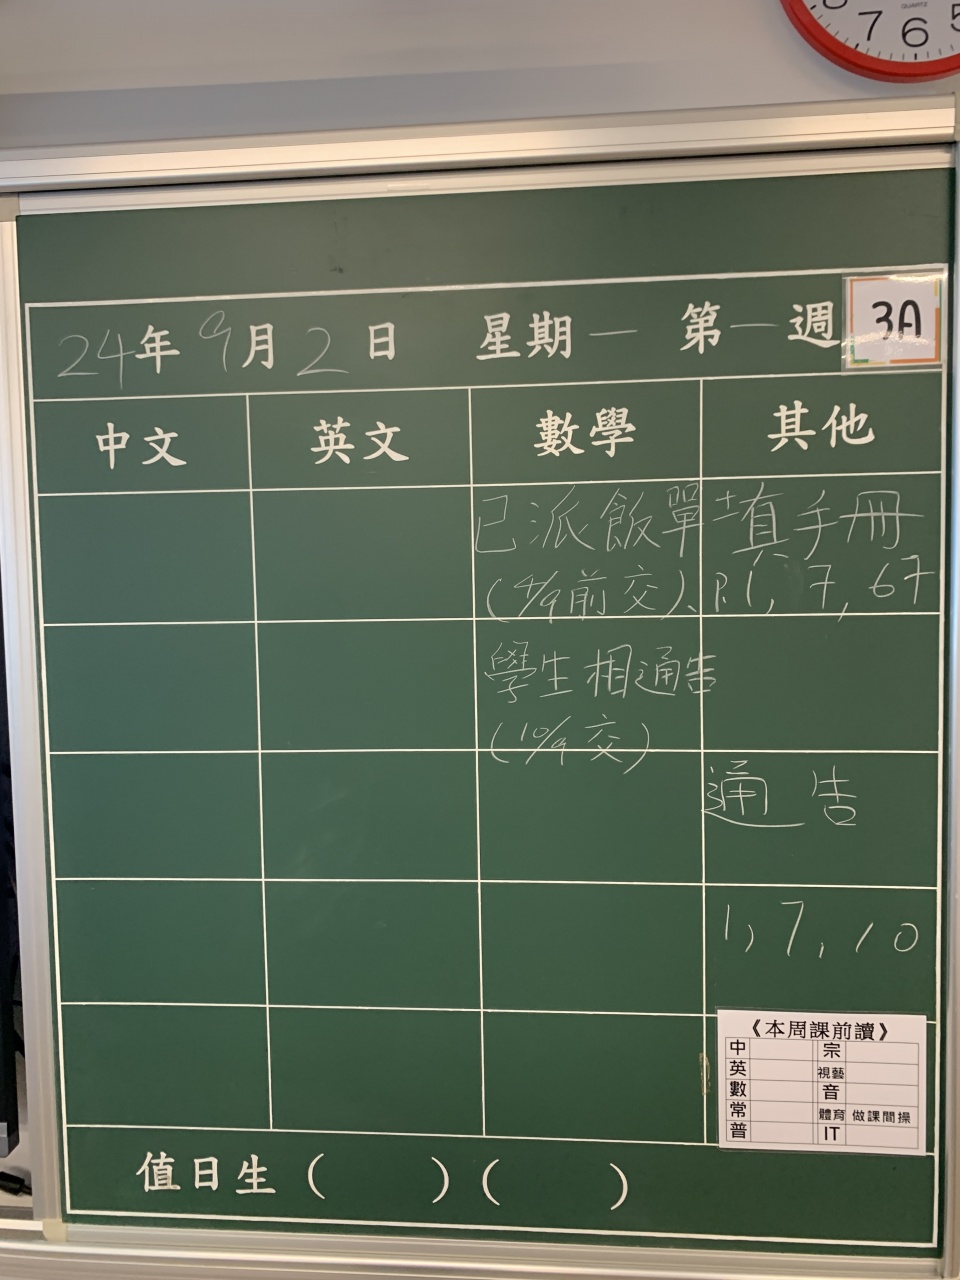 QUARTZ
8 7 6 5
24年9月2日 星期一 第一週 3A
中文 英文 數學 其他
已派飯單 填手冊
(4/9前交)、P.1, 7, 67
學生相通告
(10/9交)
通告
1, 7, 10
《本周課前讀》
中 宗
英 視藝
數 音
常 體育 做課間操
普 IT
值日生 ( ) ( )